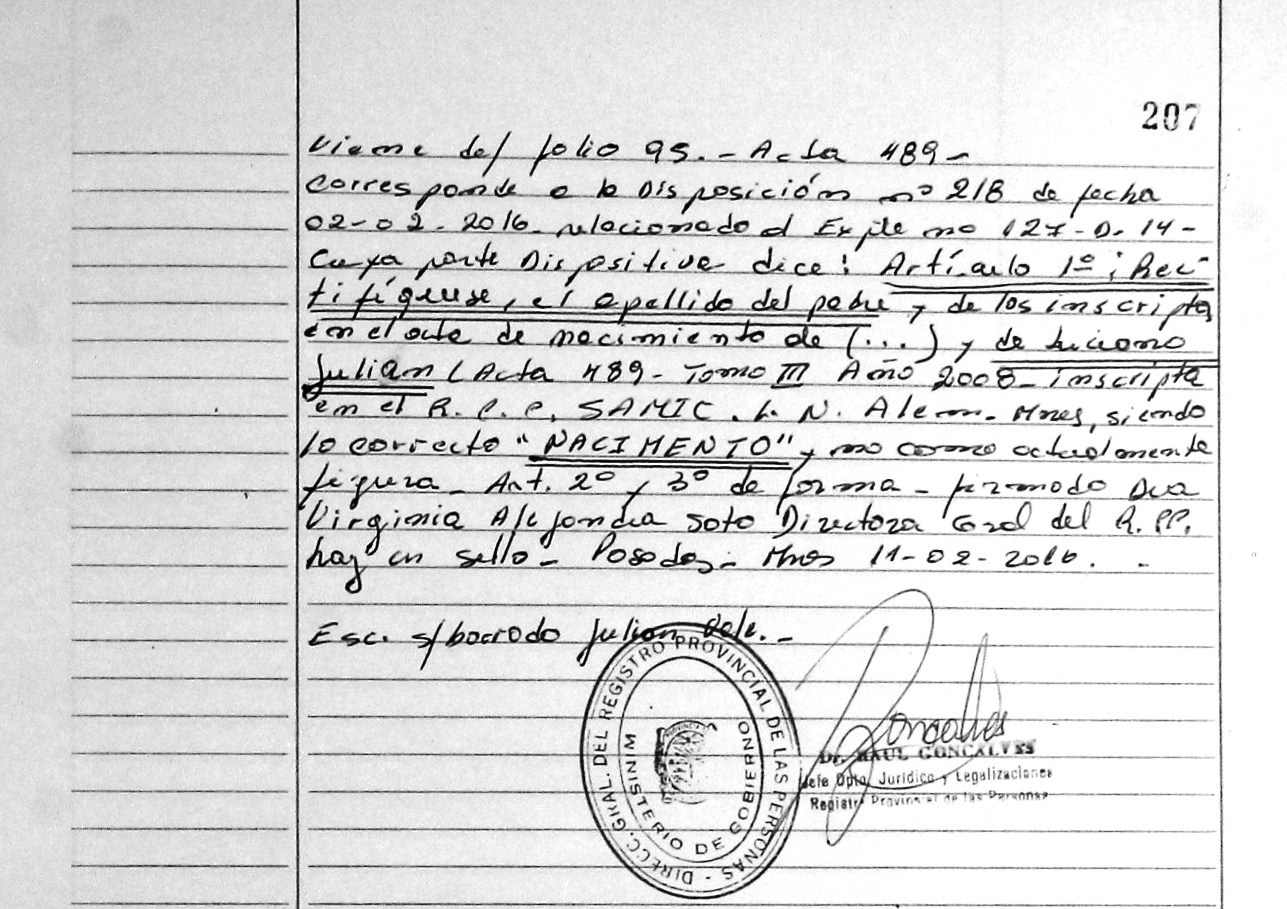 207
Viene del folio 95.- Acta 489-
Corresponde a la Disposición nº 218 de fecha
02-02-2016- relacionado al Expte nº 127-D-14-
Cuya parte Dispositiva dice: Artículo 1º: Rec-
tifíquese, el apellido del padre y de los inscriptos
en el acta de nacimiento de (...) y de Luciano
Julian (Acta 489- Tomo III Año 2008- inscripta
en el R.P.P. SAMIC. L. N. Alem- Mnes, siendo
lo correcto "NACIMENTO" y no como actualmente
figura- Art. 2º y 3º de forma- firmado Dra
Virginia Alejandra Soto Directora Gral del R.PP.
hay un sello- Posadas- Mnes 11-02-2016. -
Esc. s/borrado Julian Vale.-
DIRECC. GRAL. DEL REGISTRO PROVINCIAL DE LAS PERSONAS -
MINISTERIO DE GOBIERNO
Goncalves
Dr. RAUL GONCALVES
Jefe Dpto. Jurídico y Legalizaciones
Registro Provincial de las Personas